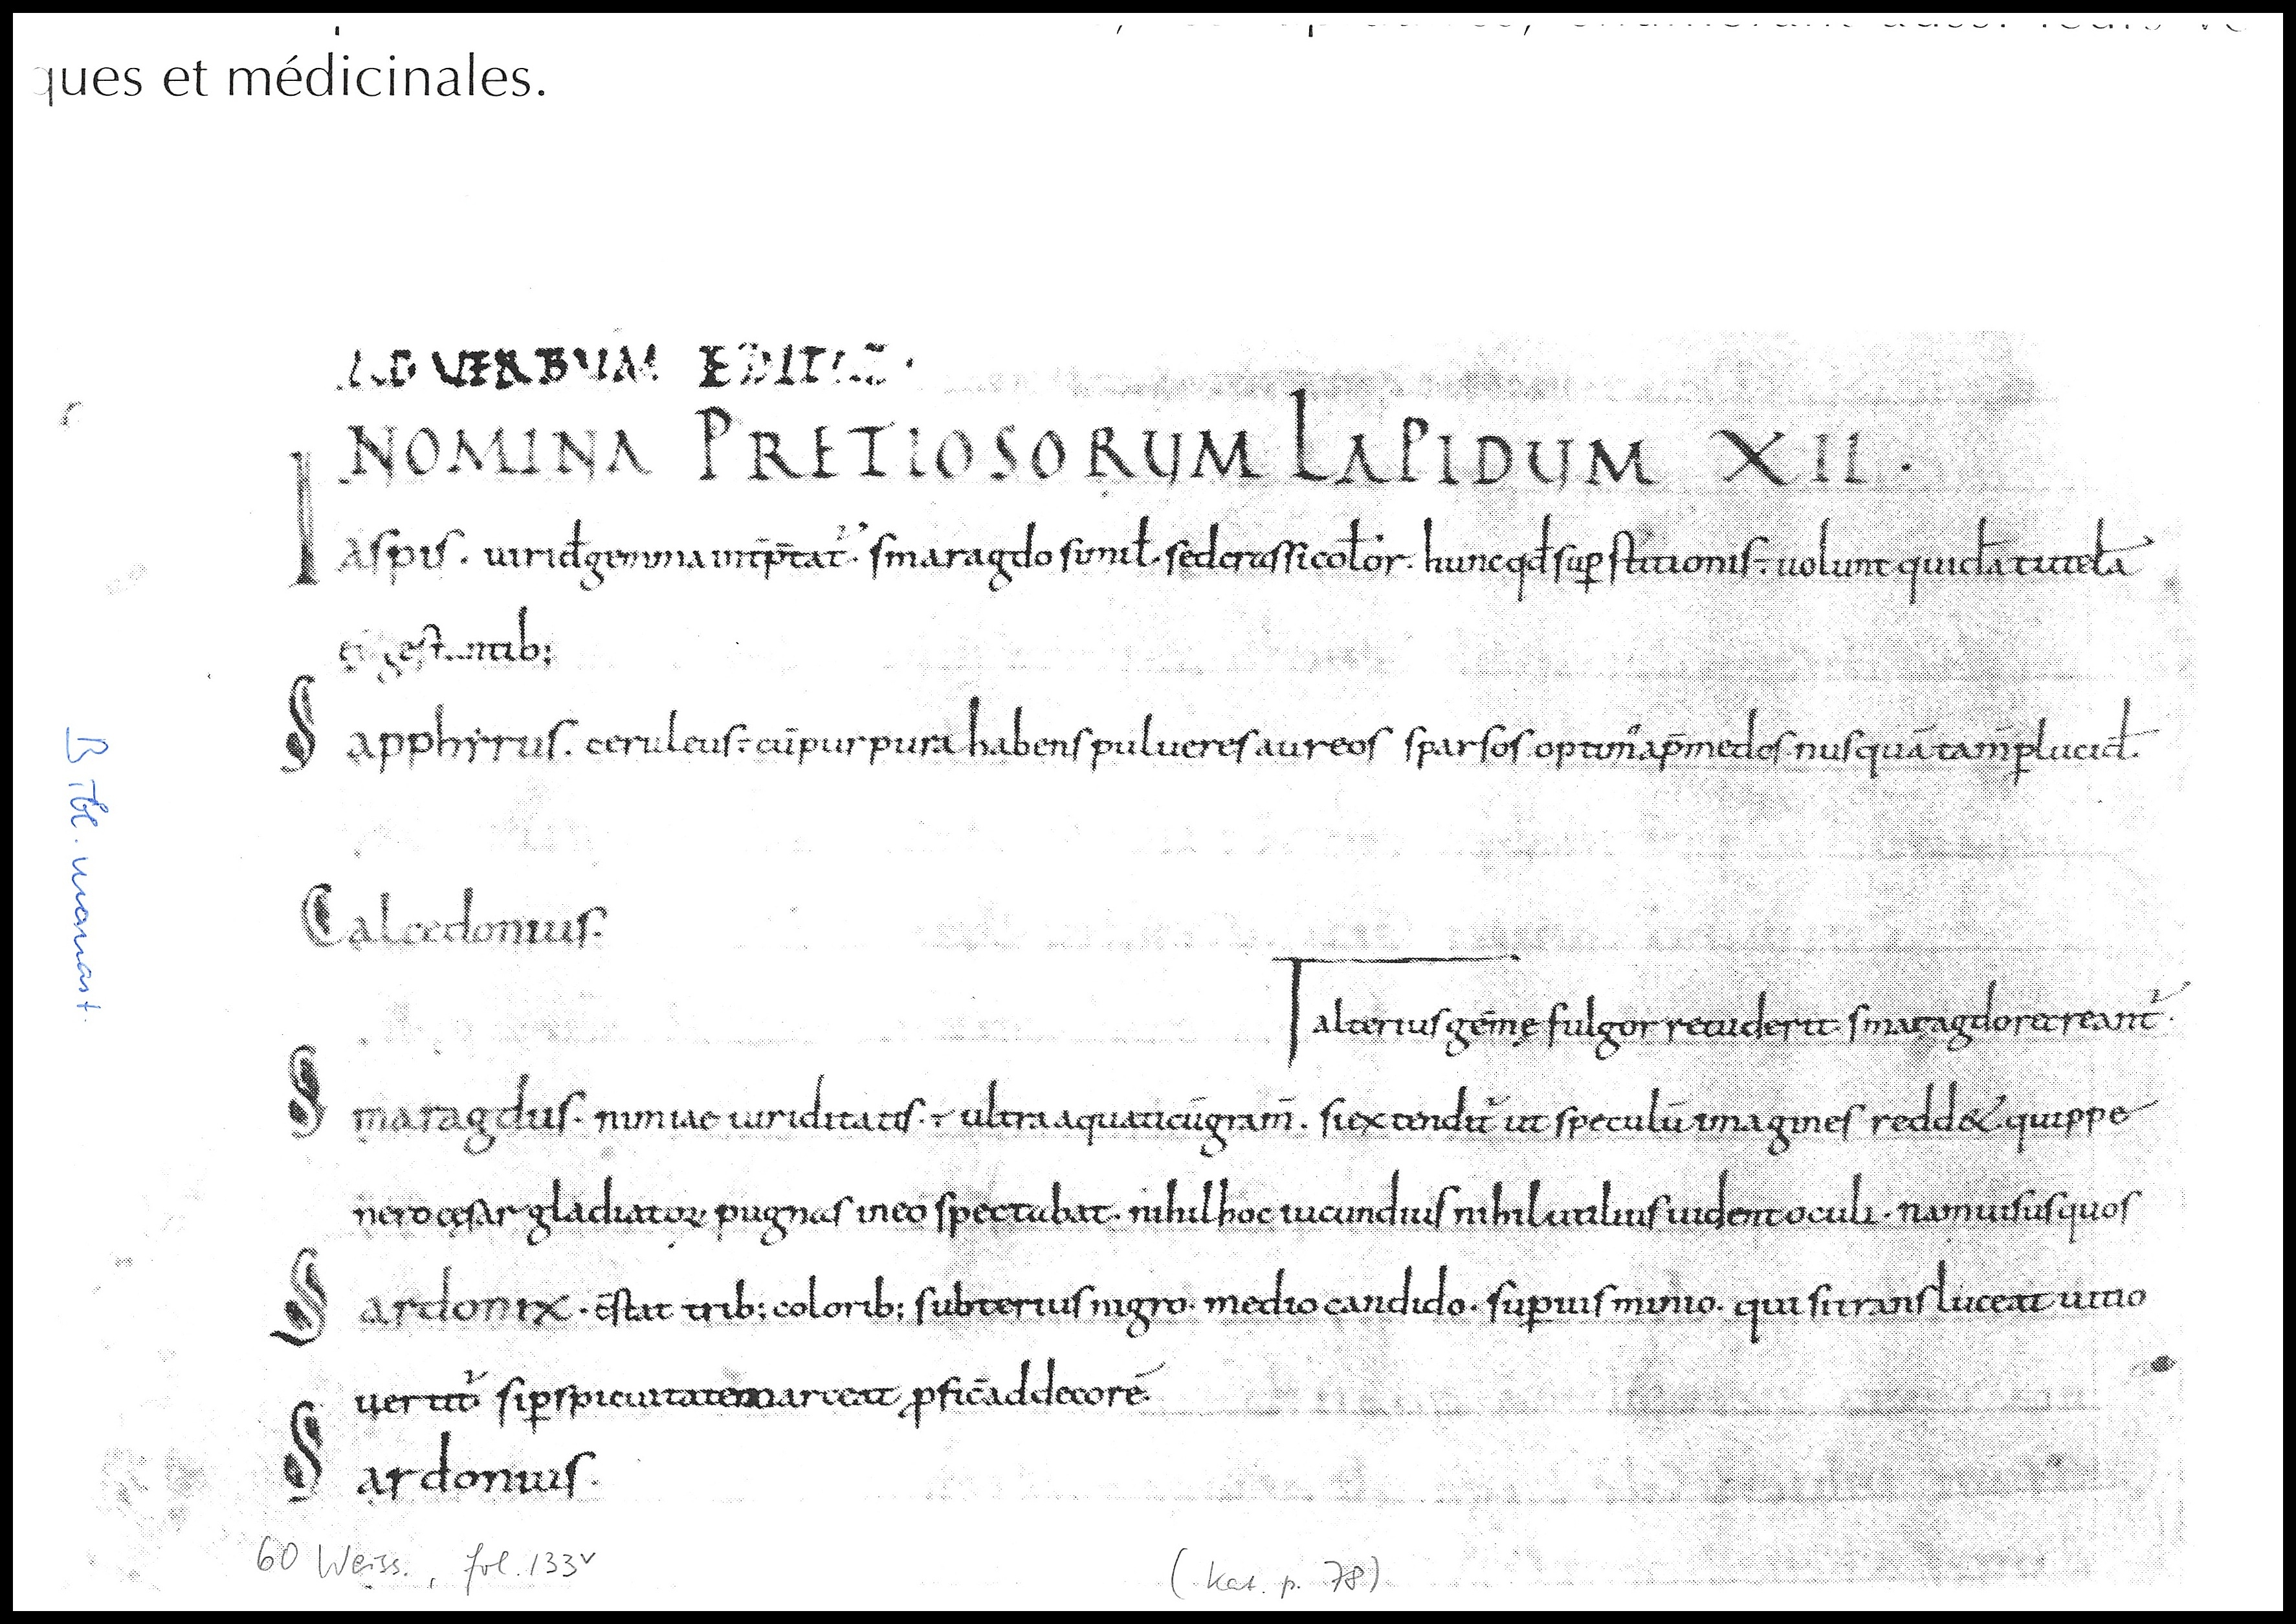 ques et médicinales.
AD VERBUM EDITIO.
NOMINA PRETIOSORUM LAPIDUM XII.
Iaspis. uirid̄ gemma int̄p̄tat᷑. smaragdo simil̄. sed crassi color̄. hunc qd̄ sup̱stitionis ÷ uolunt quidā tutelā
gestantib;
Sapphyrus. ceruleus ÷ cū purpura habens pulueres aureos sparsos optim᷒ ap̄ medos nusquā tam̄ p̱lucid̄.
Calcedonius.
alterius gēmę fulgor retuderit smaragdo recreant᷑.
Smaragdus. nimiae uiriditatis ÷ ultra aquaticū gram̄. si extendit᷑ ut speculū imagines redd&. quippe
nero cęsar gladiatoꝝ pugnas in eo spectabat. nihil hoc iucundius nihil utilius uident oculi. nam uisus quos
Sardonix. c̄stat trib; colorib; subterius nigro. medio candido. sup̱ius minio. qui si transluceat uitio
uertit᷑ si p̱spicuitatem arceat ꝓfic̄ ad decorē.
Sardonius.
60 Weiss., fol. 133v
(Kat. p. 78)
Bibl. monast.